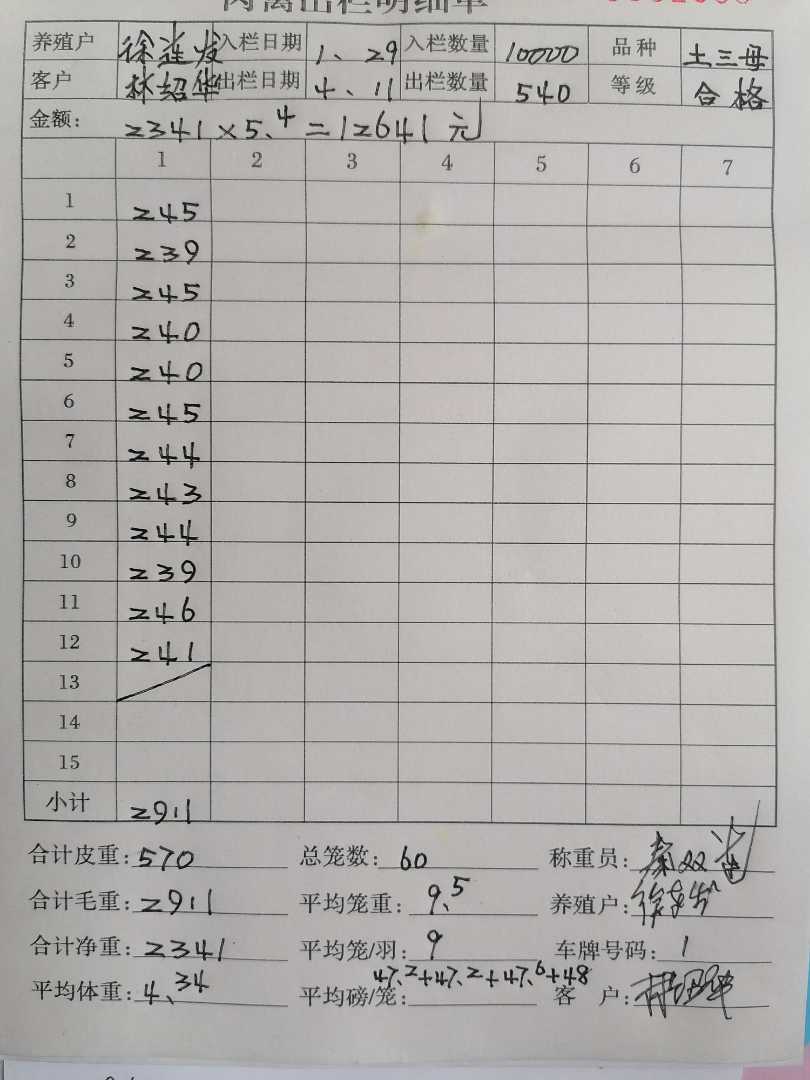 肉禽出栏明细单
养殖户 徐莲发 入栏日期 1、29 入栏数量 10000 品种 土三母
客户 林绍华 出栏日期 4、11 出栏数量 540 等级 合格
金额: 2341×5.4=12641元
1 2 3 4 5 6 7
1 245
2 239
3 245
4 240
5 240
6 245
7 244
8 243
9 244
10 239
11 246
12 241
13
14
15
小计 2911
合计皮重: 570 总笼数: 60 称重员:
合计毛重: 2911 平均笼重: 9.5 养殖户:
合计净重: 2341 平均笼/羽: 9 车牌号码: 1
平均体重: 4.34 平均磅/笼: 47.2+47.2+47.6+48 客户: